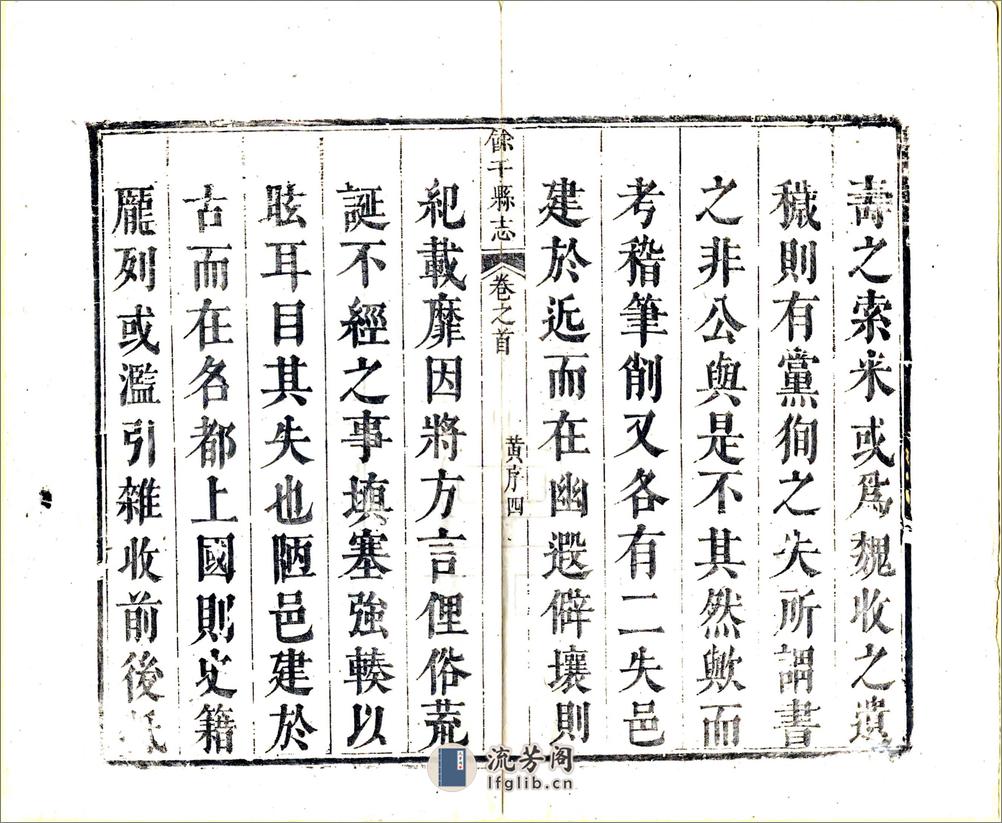 壽之索米或爲魏收之遺
穢則有黨徇之失所謂書
之非公與是不其然歟而
考稽筆削又各有二失邑
建於近而在幽遐僻壤則
餘干縣志
卷之首
黃序四
紀載靡因將方言俚俗荒
誕不經之事填塞強輳以
眩耳目其失也陋邑建於
古而在名都上國則史籍
龎列或濫引雜收前後
流芳阁
lfglib.cn